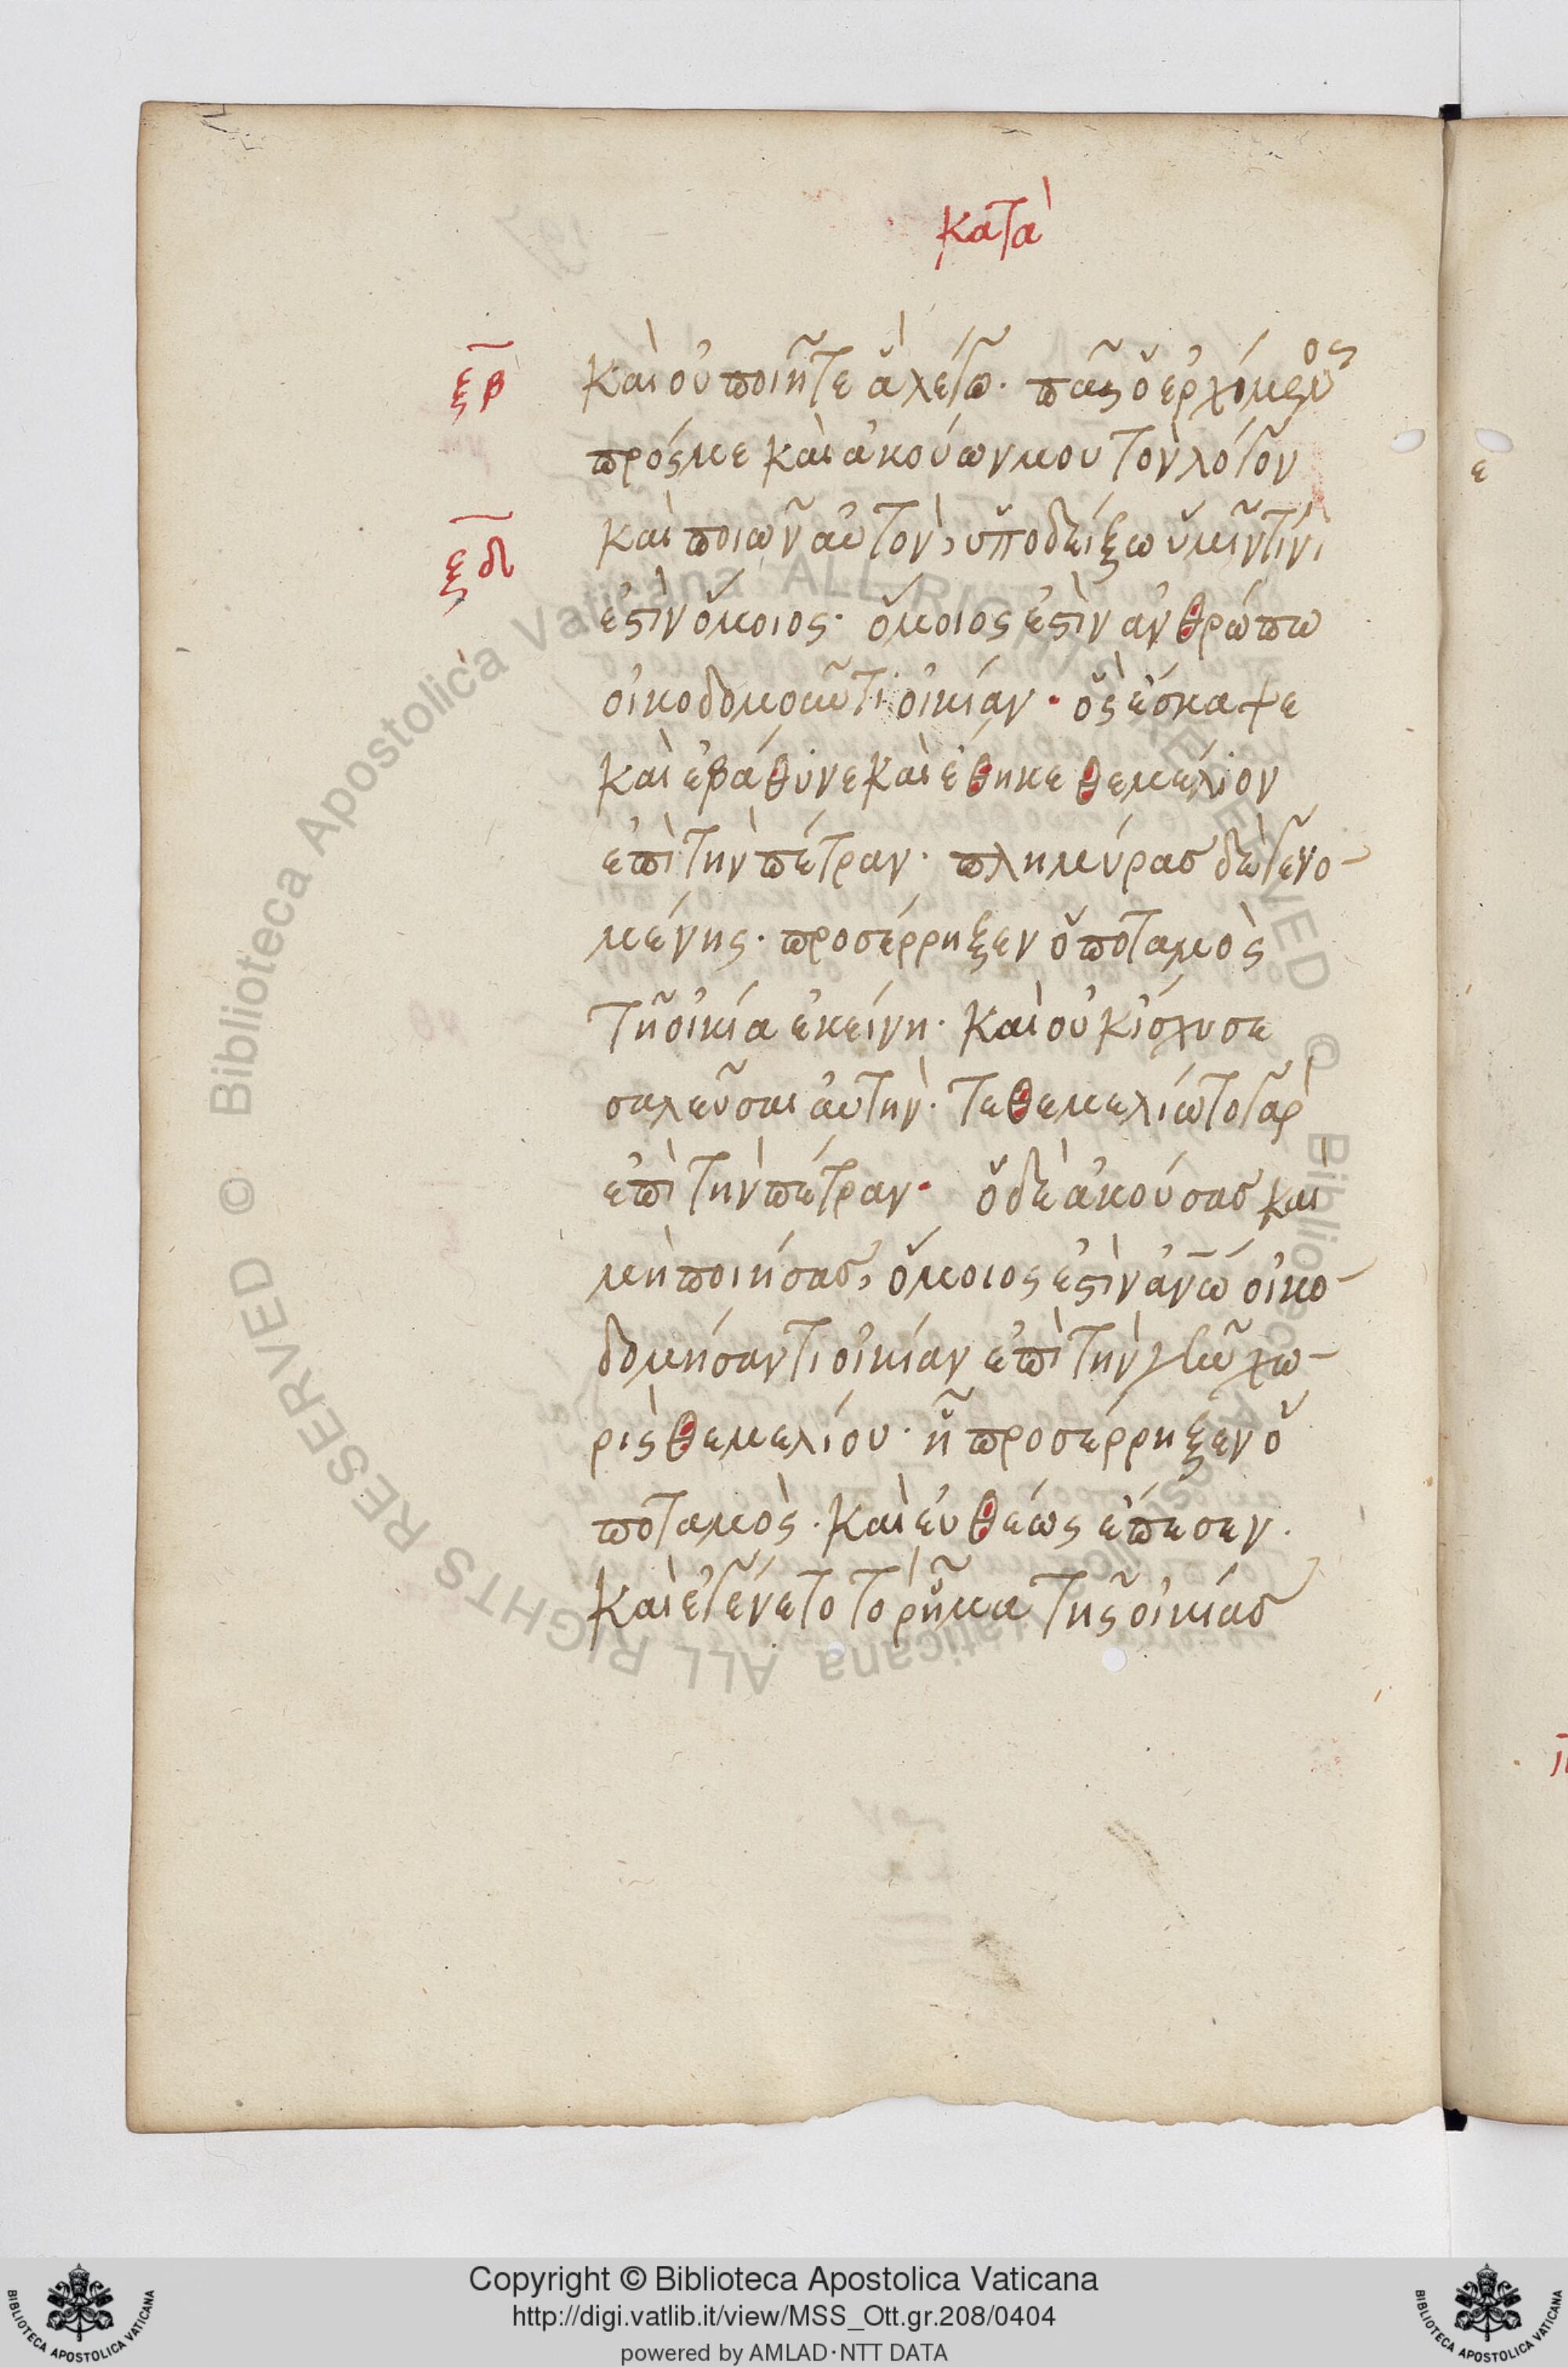 κατὰ
ξβ καὶ οὐ ποιῆτε ἃ λέγω· πᾶς ὁ ἐρχόμενος
πρός με καὶ ἀκούων μου τὸν λόγον
ξδ καὶ ποιῶν αὐτὸν, ὑποδείξω ὑμῖν τίνι
ἐστὶν ὅμοιος· ὅμοιος ἐστὶν ἀνθρώπω
οἰκοδομοῦντι οἰκίαν· ὃς ἔσκαψε
καὶ ἐβάθυνε καὶ ἔθηκε θεμέλιον
ἐπὶ τὴν πέτραν· πλημύρας δὲ γενο-
μένης· προσέρρηξεν ὁ ποταμὸς
τῆ οἰκία ἐκείνη· καὶ οὐκ ἴσχυσε
σαλεῦσαι αὐτὴν· τεθεμελίωτο γὰρ
ἐπὶ τὴν πέτραν· ὁ δὲ ἀκούσας καὶ
μὴ ποιήσας, ὅμοιος ἐστὶν ἀνω οἰκο-
δομήσαντι οἰκίαν ἐπὶ τὴν γῆν χω-
ρὶς θεμελίου· ἧ προσέρρηξεν ὁ
ποταμὸς· καὶ εὐθέως ἔπεσεν·
καὶ ἐγένετο τὸ ῥῆγμα τῆς οἰκίας
Copyright © Biblioteca Apostolica Vaticana
http://digi.vatlib.it/view/MSS_Ott.gr.208/0404
powered by AMLAD·NTT DATA
BIBLIOTECA APOSTOLICA VATICANA
BIBLIOTECA APOSTOLICA VATICANA
© Biblioteca Apostolica Vaticana ALL RIGHTS RESERVED
© Biblioteca Apostolica Vaticana ALL RIGHTS RESERVED